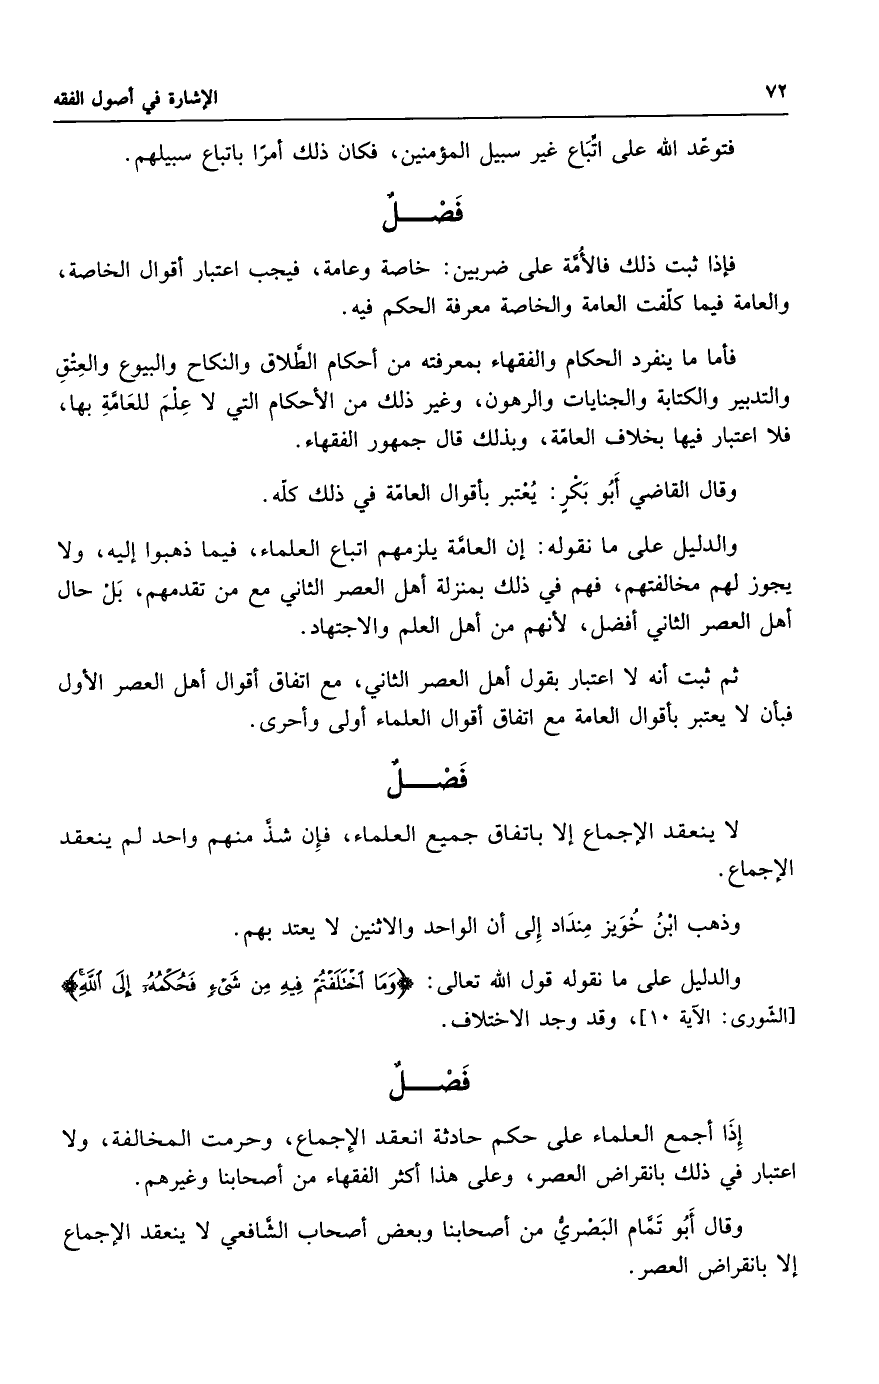 ٧٢
الإشارة في أصول الفقه
فتوعّد الله على اتِّبَاع غير سبيل المؤمنين، فكان ذلك أمرًا باتباع سبيلهم.
فَصْـــلٌ
فإذا ثبت ذلك فالأُمَّة على ضربين: خاصة وعامة، فيجب اعتبار أقوال الخاصة،
والعامة فيما كلّفت العامة والخاصة معرفة الحكم فيه.
فأما ما ينفرد الحكام والفقهاء بمعرفته من أحكام الطَّلاق والنكاح والبيوع والعِتْقِ
والتدبير والكتابة والجنايات والرهون، وغير ذلك من الأحكام التي لا عِلْمَ للعَامَّةِ بها،
فلا اعتبار فيها بخلاف العامّة، وبذلك قال جمهور الفقهاء.
وقال القاضي أَبُو بَكْرٍ: يُعْتبر بأقوال العامّة في ذلك كلّه.
والدليل على ما نقوله: إن العامَّة يلزمهم اتباع العلماء، فيما ذهبوا إليه، ولا
يجوز لهم مخالفتهم، فهم في ذلك بمنزلة أهل العصر الثاني مع من تقدمهم، بَلْ حال
أهل العصر الثاني أفضل، لأنهم من أهل العلم والاجتهاد.
ثم ثبت أنه لا اعتبار بقول أهل العصر الثاني، مع اتفاق أقوال أهل العصر الأول
فبأن لا يعتبر بأقوال العامة مع اتفاق أقوال العلماء أولى وأحرى.
فَصْـــلٌ
لا ينعقد الإجماع إلا باتفاق جميع العلماء، فإن شذَّ منهم واحد لم ينعقد
الإجماع.
وذهب ابْنُ خُوَيز مِندَاد إلى أن الواحد والاثنين لا يعتد بهم.
والدليل على ما نقوله قول الله تعالى: ﴿وَمَا ٱخْتَلَفْتُمْ فِيهِ مِن شَىْءٍ فَحُكْمُهُۥٓ إِلَى ٱللَّهِۚ﴾
[الشّورى: الآية ١٠]، وقد وجد الاختلاف.
فَصْـــلٌ
إِذَا أجمع العلماء على حكم حادثة انعقد الإجماع، وحرمت المخالفة، ولا
اعتبار في ذلك بانقراض العصر، وعلى هذا أكثر الفقهاء من أصحابنا وغيرهم.
وقال أَبُو تَمَّام البَصْريُّ من أصحابنا وبعض أصحاب الشَّافعي لا ينعقد الإجماع
إلا بانقراض العصر.